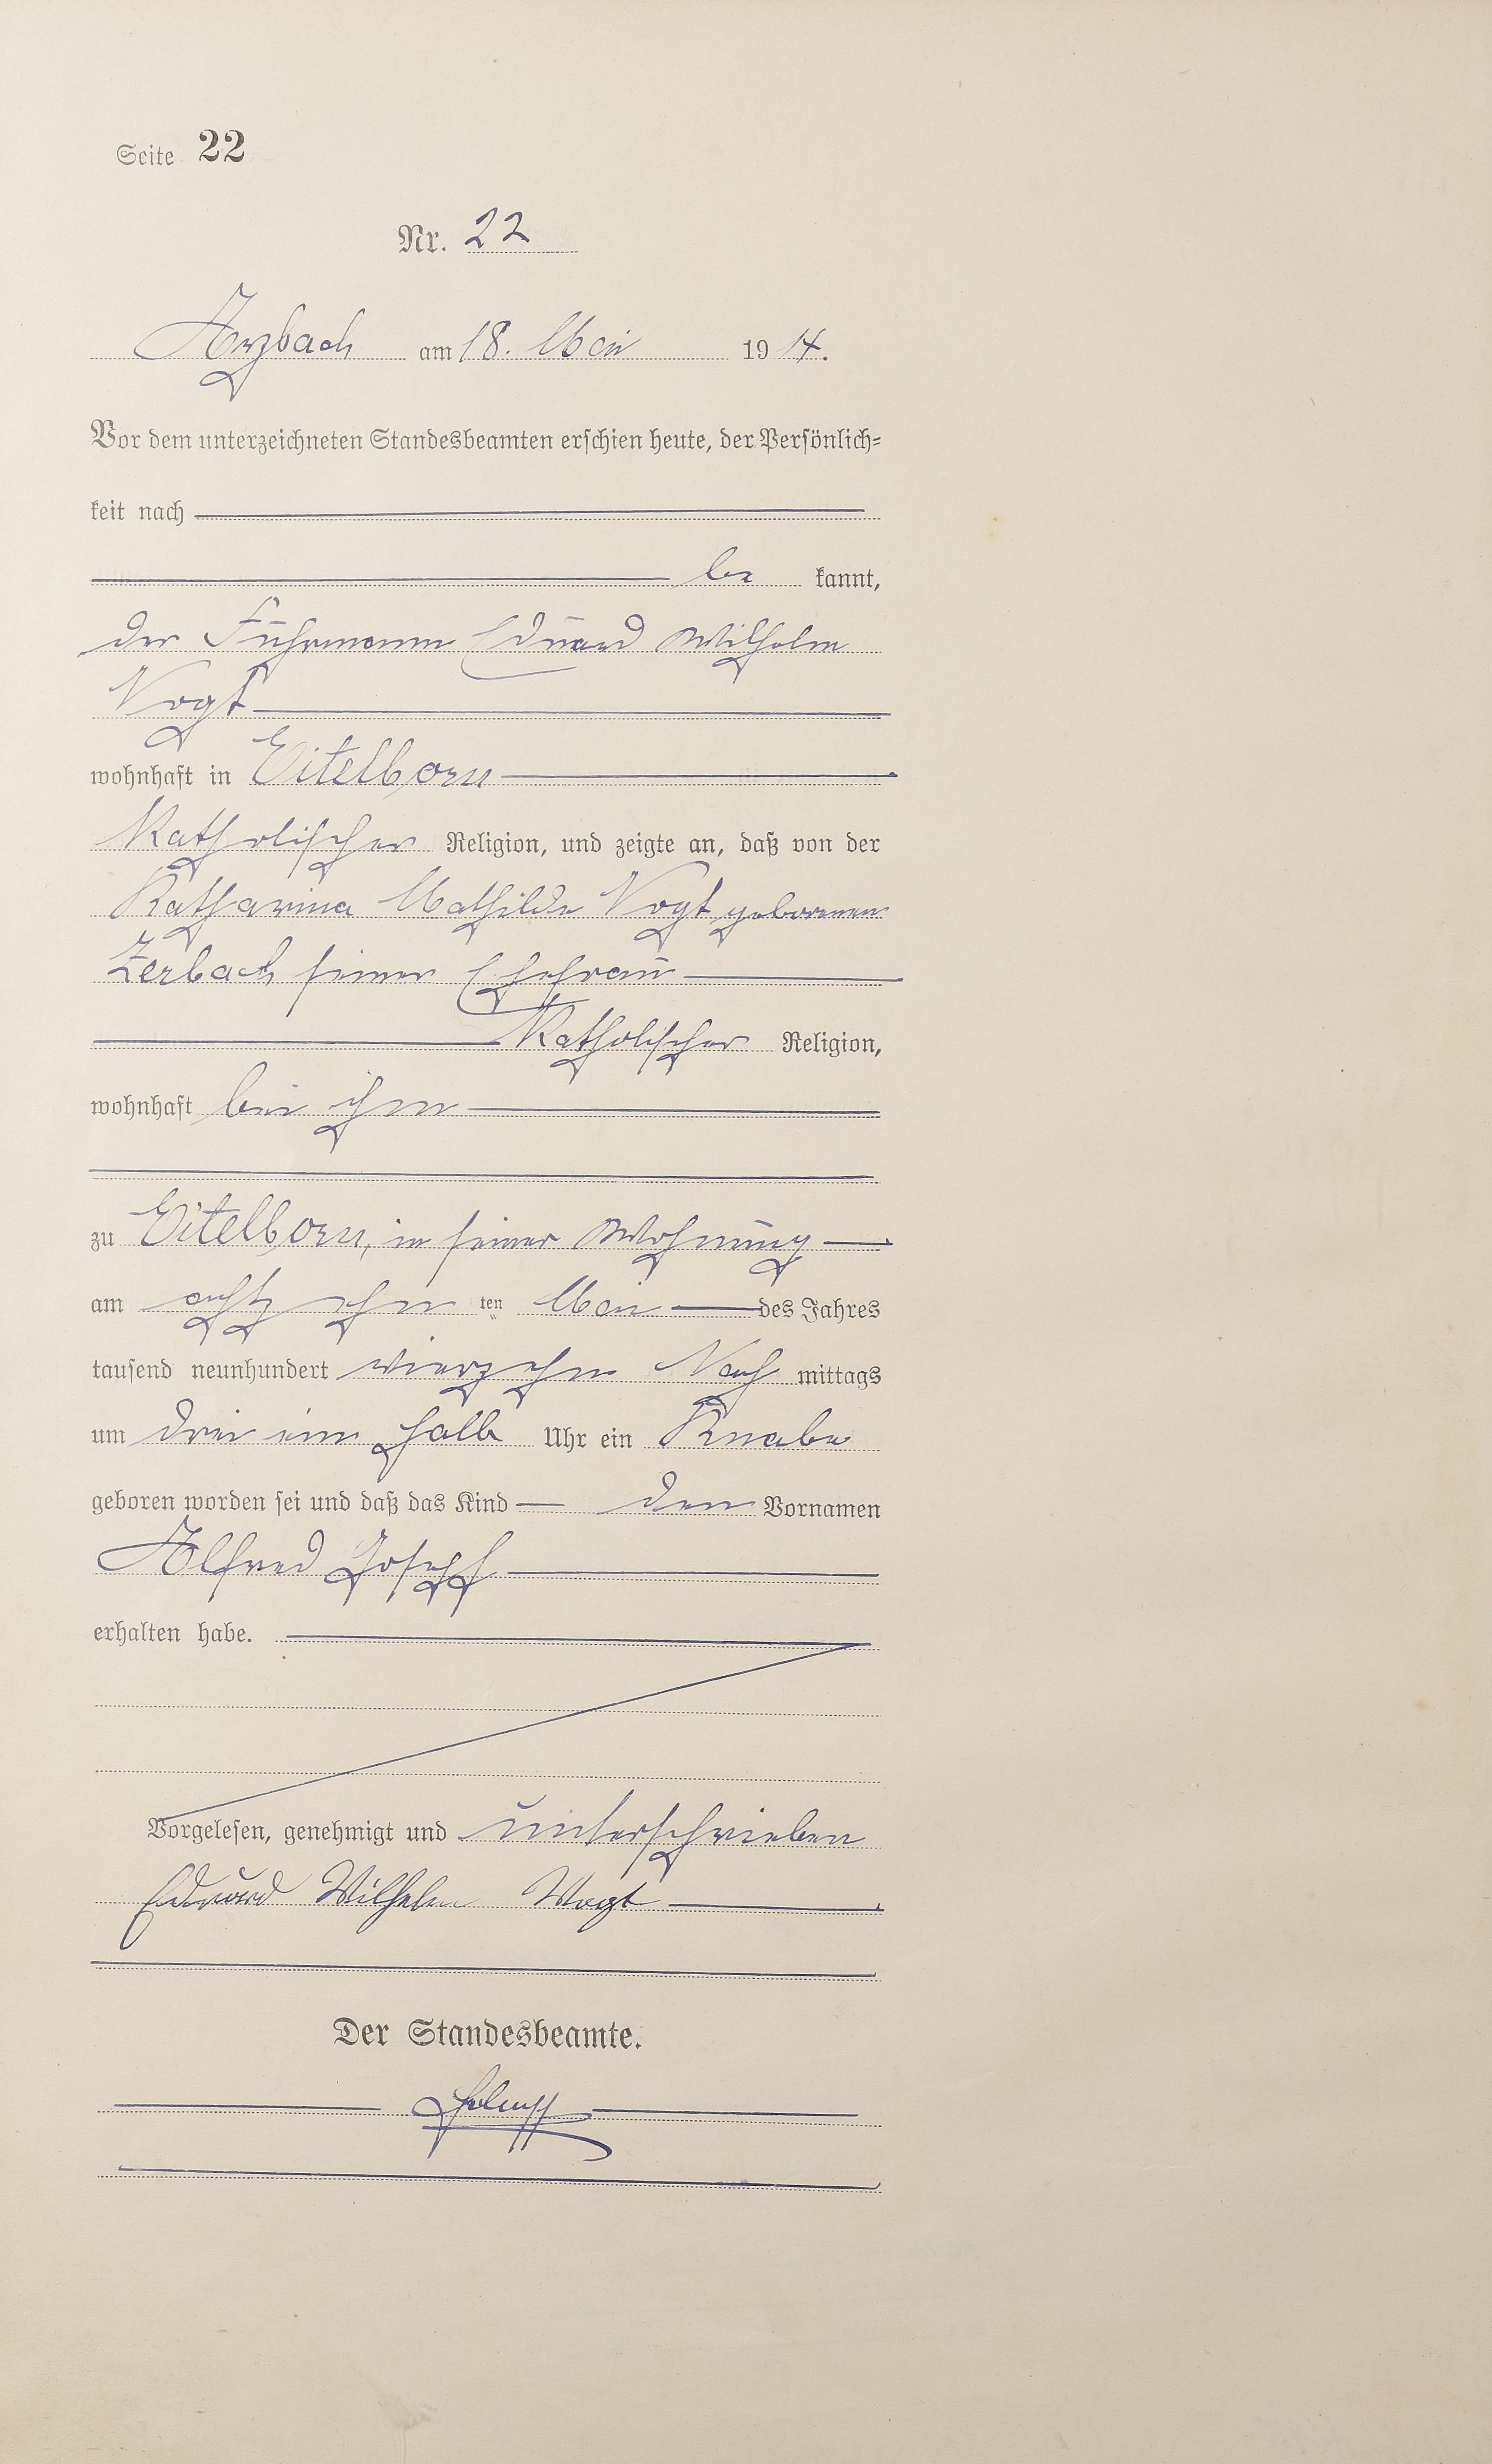 Seite 22
Nr. 22
Arzbach am 18. Mai 1914.
Vor dem unterzeichneten Standesbeamten erschien heute, der Persönlich-
keit nach
be kannt,
der Fuhrmann Eduard Wilhelm
Vogt
wohnhaft in Eitelborn
Katholischer Religion, und zeigte an, daß von der
Katharina Mathilde Vogt geborenen
Zerbach seiner Ehefrau
Katholischer Religion,
wohnhaft bei ihm
zu Eitelborn, in seiner Wohnung
am achtzehn ten Mai des Jahres
tausend neunhundert vierzehn Nach mittags
um drei ein halb Uhr ein Knabe
geboren worden sei und daß das Kind den Vornamen
Alfred Joseph
erhalten habe.
Vorgelesen, genehmigt und unterschrieben
Eduard Wilhelm Vogt
Der Standesbeamte.